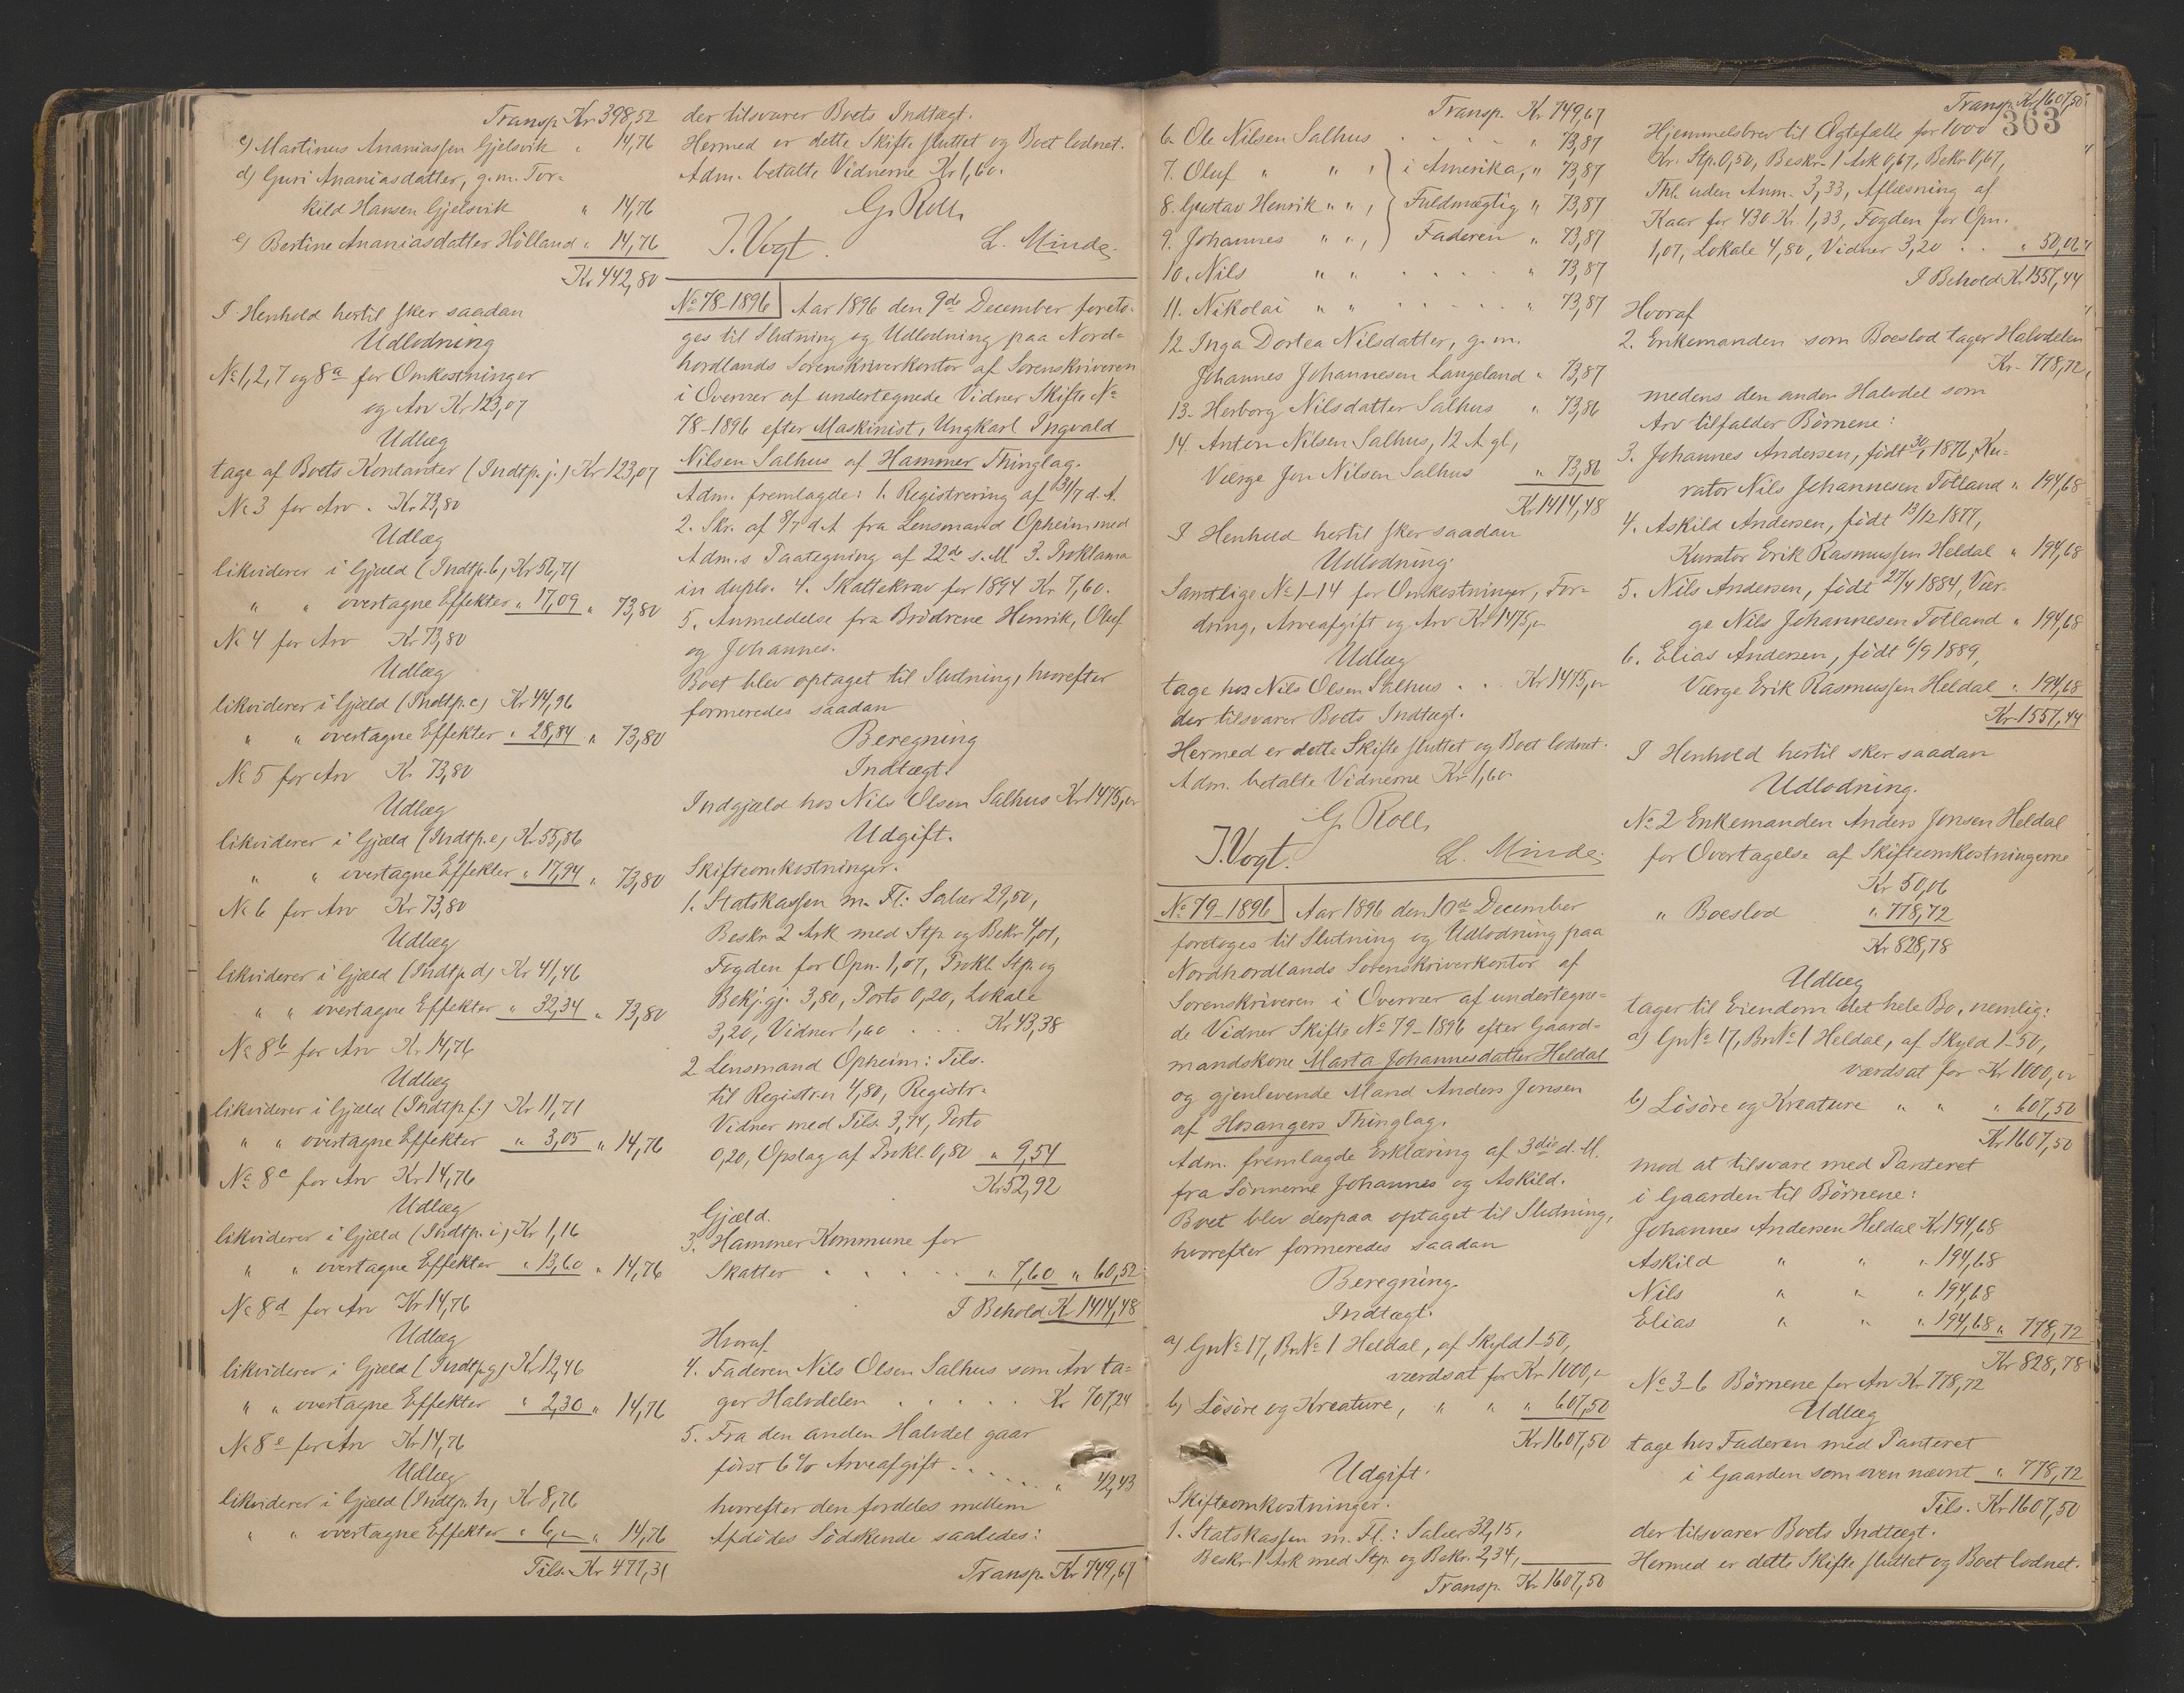 Transp. Kr 398,52
c) Martinus Ananiassen Gjelsvik „ 14,76
d) Guri Ananiasdatter, g. m. Tor-
kild Hansen Gjelsvik „ 14,76
e) Bertine Ananiasdatter Hölland „ 14,76
Kr 442,80
I Henhold hertil sker saadan
Udlodning
No 1, 2, 7 og 8a for Omkostninger
og Arv Kr 123,07
Udlæg
tage af Boets Kontanter (Indtp. j.) Kr 123,07
No 3 for Arv . Kr 73,80
Udlæg
likviderer i Gjæld (Indtp. b) Kr 56,71
„ „ overtagne Effekter „ 17,09 „ 73,80
No 4 for Arv Kr 73,80
Udlæg
likviderer i Gjæld (Indtp. c) Kr 44,96
„ „ overtagne Effekter „ 28,84 „ 73,80
No 5 for Arv Kr 73,80
Udlæg
likviderer i Gjæld (Indtp. e) Kr 55,86
„ „ overtagne Effekter „ 17,94 „ 73,80
No 6 for Arv Kr 73,80
Udlæg
likviderer i Gjæld (Indtp. d) Kr 41,46
„ „ overtagne Effekter „ 32,34 „ 73,80
No 8b for Arv Kr 14,76
Udlæg
likviderer i Gjæld (Indtp. f.) Kr 11,71
„ „ overtagne Effekter „ 3,05 „ 14,76
No 8c for Arv Kr 14,76
Udlæg
likviderer i Gjæld (Indtp. i) Kr 1,16
„ „ overtagne Effekter „ 13,60 „ 14,76
No 8d for Arv Kr 14,76
Udlæg
likviderer i Gjæld (Indtp. g) Kr 12,46
„ „ overtagne Effekter „ 2,30 „ 14,76
No 8e for Arv Kr 14,76
Udlæg
likviderer i Gjæld (Indtp. h) Kr 8,76
„ „ overtagne Effekter „ 6,- „ 14,76
Tils. Kr 477,31
der tilsvarer Boets Indtægt.
Hermed er dette Skifte sluttet og Boet lodnet.
Adm. betalte Vidnerne Kr 1,60.
G. Roll
J. Vogt. L. Minde.
No 78-1896 Aar 1896 den 9de December foreto-
ges til Slutning og Udlodning paa Nord-
hordlands Sorenskriverkontor af Sorenskriveren
i Overvær af undertegnede Vidner Skifte No
78-1896 efter Maskinist, Ungkarl Ingvald
Nilsen Salhus af Hammer Thinglag.
Adm. fremlagde: 1. Registrering af 31/7 d. A.
2. Skr. af 8/7 d. A fra Lensmand Opheim med
Adm.s Paategning af 22de s. M. 3. Proklama
in duplo. 4. Skattekrav for 1894 Kr 7,60.
5. Anmeldelse fra Brödrene Henrik, Oluf
og Johannes.
Boet blev optaget til Slutning, hvorefter
formeredes saadan
Beregning
Indtægt.
Indgjæld hos Nils Olsen Salhus Kr 1475,00
Udgift.
Skifteomkostninger.
1. Statskassen m. Fl: Salær 29,50,
Beskr. 2 Ark med Stp. og Bekr. 4,01,
Fogden for Opn. 1,07, Prokl. Stp. og
Bekj.gj. 3,80, Porto 0,20, Lokale
3,20, Vidner 1,60 . . . Kr 43,38
2. Lensmand Opheim: Tils.
til Registr.n 4,80, Registr.-
Vidner med Tils. 3,74, Porto
0,20, Opslag af Prokl. 0,80 „ 9,54
Kr 52,92
Gjæld.
3. Hammer Kommune for
Skatter . . . . . „ 7,60 „ 60,52
I Behold Kr 1414,48
Hvoraf
4. Faderen Nils Olsen Salhus som Arv ta-
ger Halvdelen . . . . . Kr 707,24
5. Fra den anden Halvdel gaar
först 6% Arveafgift . . . . . „ 42,43
hvorefter den fordeles mellem
Afdödes Södskende saaledes:
Transp. Kr 749,67
Transp. Kr 749,67
6. Ole Nilsen Salhus . . . . „ 73,87
7. Oluf „ „ , i Amerika, „ 73,87
8. Gustav Henrik „ „ , Fuldmægtig „ 73,87
9. Johannes „ „ , Faderen „ 73,87
10. Nils „ „ . . . . . „ 73,87
11. Nikolai „ „ . . . . . „ 73,87
12. Inga Dortea Nilsdatter, g. m.
Johannes Johannesen Langeland „ 73,87
13. Herborg Nilsdatter Salhus „ 73,86
14. Anton Nilsen Salhus, 12 A gl,
Værge Jon Nilsen Salhus „ 73,86
Kr 1414,48
I Henhold hertil sker saadan
Udlodning.
Samtlige No 1-14 for Omkostninger, For-
dring, Arveafgift og Arv Kr 1475,00
Udlæg
tage hos Nils Olsen Salhus . . Kr 1475,00
der tilsvarer Boets Indtægt.
Hermed er dette Skifte sluttet og Boet lodnet.
Adm. betalte Vidnerne Kr 1,60.
G. Roll
J. Vogt. L. Minde.
No 79-1896 Aar 1896 den 10de December
foretoges til Slutning og Udlodning paa
Nordhordlands Sorenskriverkontor af
Sorenskriveren i Overvær af undertegne-
de Vidner Skifte No 79-1896 efter Gaard-
mandskone Marta Johannesdatter Heldal
og gjenlevende Mand Anders Jonsen
af Hosangers Thinglag.
Adm. fremlagde Erklæring af 3die d. M.
fra Sönnerne Johannes og Askild.
Boet blev derpaa optaget til Slutning,
hvorefter formeredes saadan
Beregning.
Indtægt.
a) Gn No 17, Bn No 1 Heldal, af Skyld 1-50,
værdsat for Kr 1000,-
b) Lösöre og Kreature, „ „ „ 607,50
Kr 1607,50
Udgift.
Skifteomkostninger.
1. Statskassen m. Fl.: Salær 32,15,
Beskr. 1 Ark med Stp. og Bekr. 2,34,
Transp. Kr 1607,50
Transp. Kr 1607,50
363
Hjemmelsbrev til Ægtefælle for 1000
Kr. Stp. 0,50, Beskr. 1 Ark 0,67, Bekr 0,67,
Thl. uden Anm. 3,33, Aflæsning af
Kaar for 430 Kr. 1,33, Fogden for Opn.
1,07, Lokale 4,80, Vidner 3,20 . . „ 50,06
I Behold Kr 1557,44
Hvoraf
2. Enkemanden som Boeslod tager Halvdelen
Kr. 778,72
medens den anden Halvdel som
Arv tilfalder Börnene:
3. Johannes Andersen, födt 1876, Ku-
rator Nils Johannesen Totland „ 194,68
4. Askild Andersen, födt 13/12 1877,
Kurator Erik Rasmussen Heldal „ 194,68
5. Nils Andersen, födt 27/4 1884, Vær-
ge Nils Johannesen Totland „ 194,68
6. Elias Andersen, födt 6/9 1889,
Værge Erik Rasmussen Heldal „ 194,68
Kr 1557,44
I Henhold hertil sker saadan
Udlodning.
No 2 Enkemanden Anders Jonsen Heldal
for Overtagelse af Skifteomkostningerne
Kr 50,06
„ Boeslod „ 778,72
Kr 828,78
Udlæg
tager til Eiendom det hele Bo, nemlig:
a) Gn No 17, Bn No 1 Heldal, af Skyld 1-50,
værdsat for Kr 1000,00
b) Lösöre og Kreature „ „ „ 607,50
Kr 1607,50
mod at tilsvare med Panteret
i Gaarden til Börnene:
Johannes Andersen Heldal Kr 194,68
Askild „ „ „ 194,68
Nils „ „ „ 194,68
Elias „ „ „ 194,68 „ 778,72
Kr 828,78
No 3-6 Börnene for Arv Kr 778,72
Udlæg
tage hos Faderen med Panteret
i Gaarden som oven nævnt „ 778,72
Tils. Kr 1607,50
der tilsvarer Boets Indtægt.
Hermed er dette Skifte sluttet og Boet lodnet.